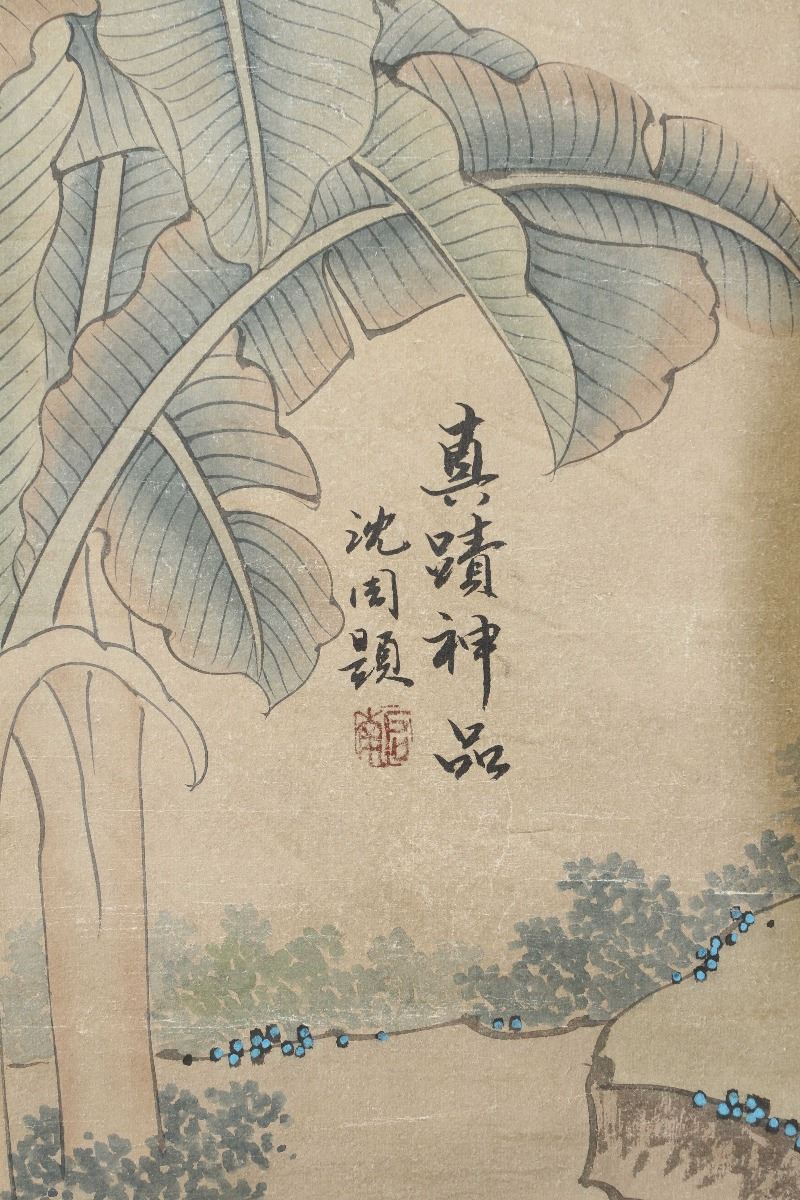 真蹟神品
沈周題